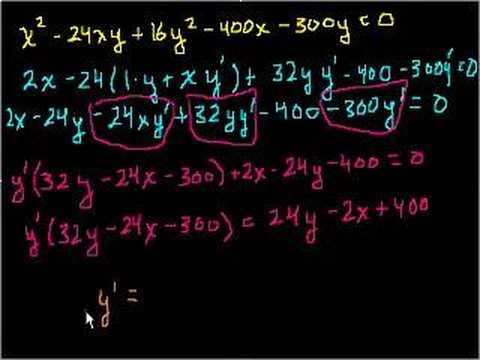 x² - 24xy + 16y² - 400x - 300y = 0
2x - 24(1·y + x y') + 32y y' - 400 - 300y' = 0
2x - 24y - 24xy' + 32yy' - 400 - 300y' = 0
y'(32y - 24x - 300) + 2x - 24y - 400 = 0
y'(32y - 24x - 300) = 24y - 2x + 400
y' =